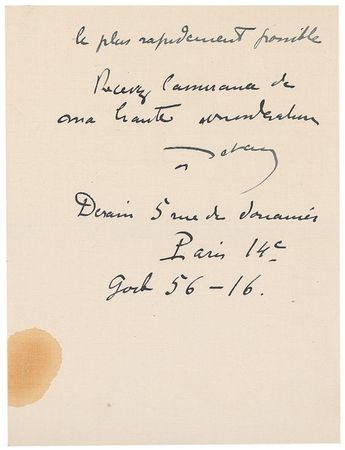 le plus rapidement possible
Recevez l'assurance de
ma haute considération
Derain
Derain 5 rue du douanier
Paris 14e
Gob 56-16.